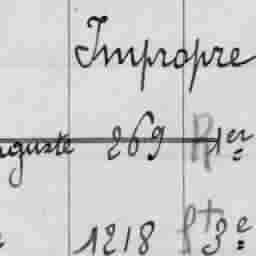 Impropre
guste 269 1er
1218 3e